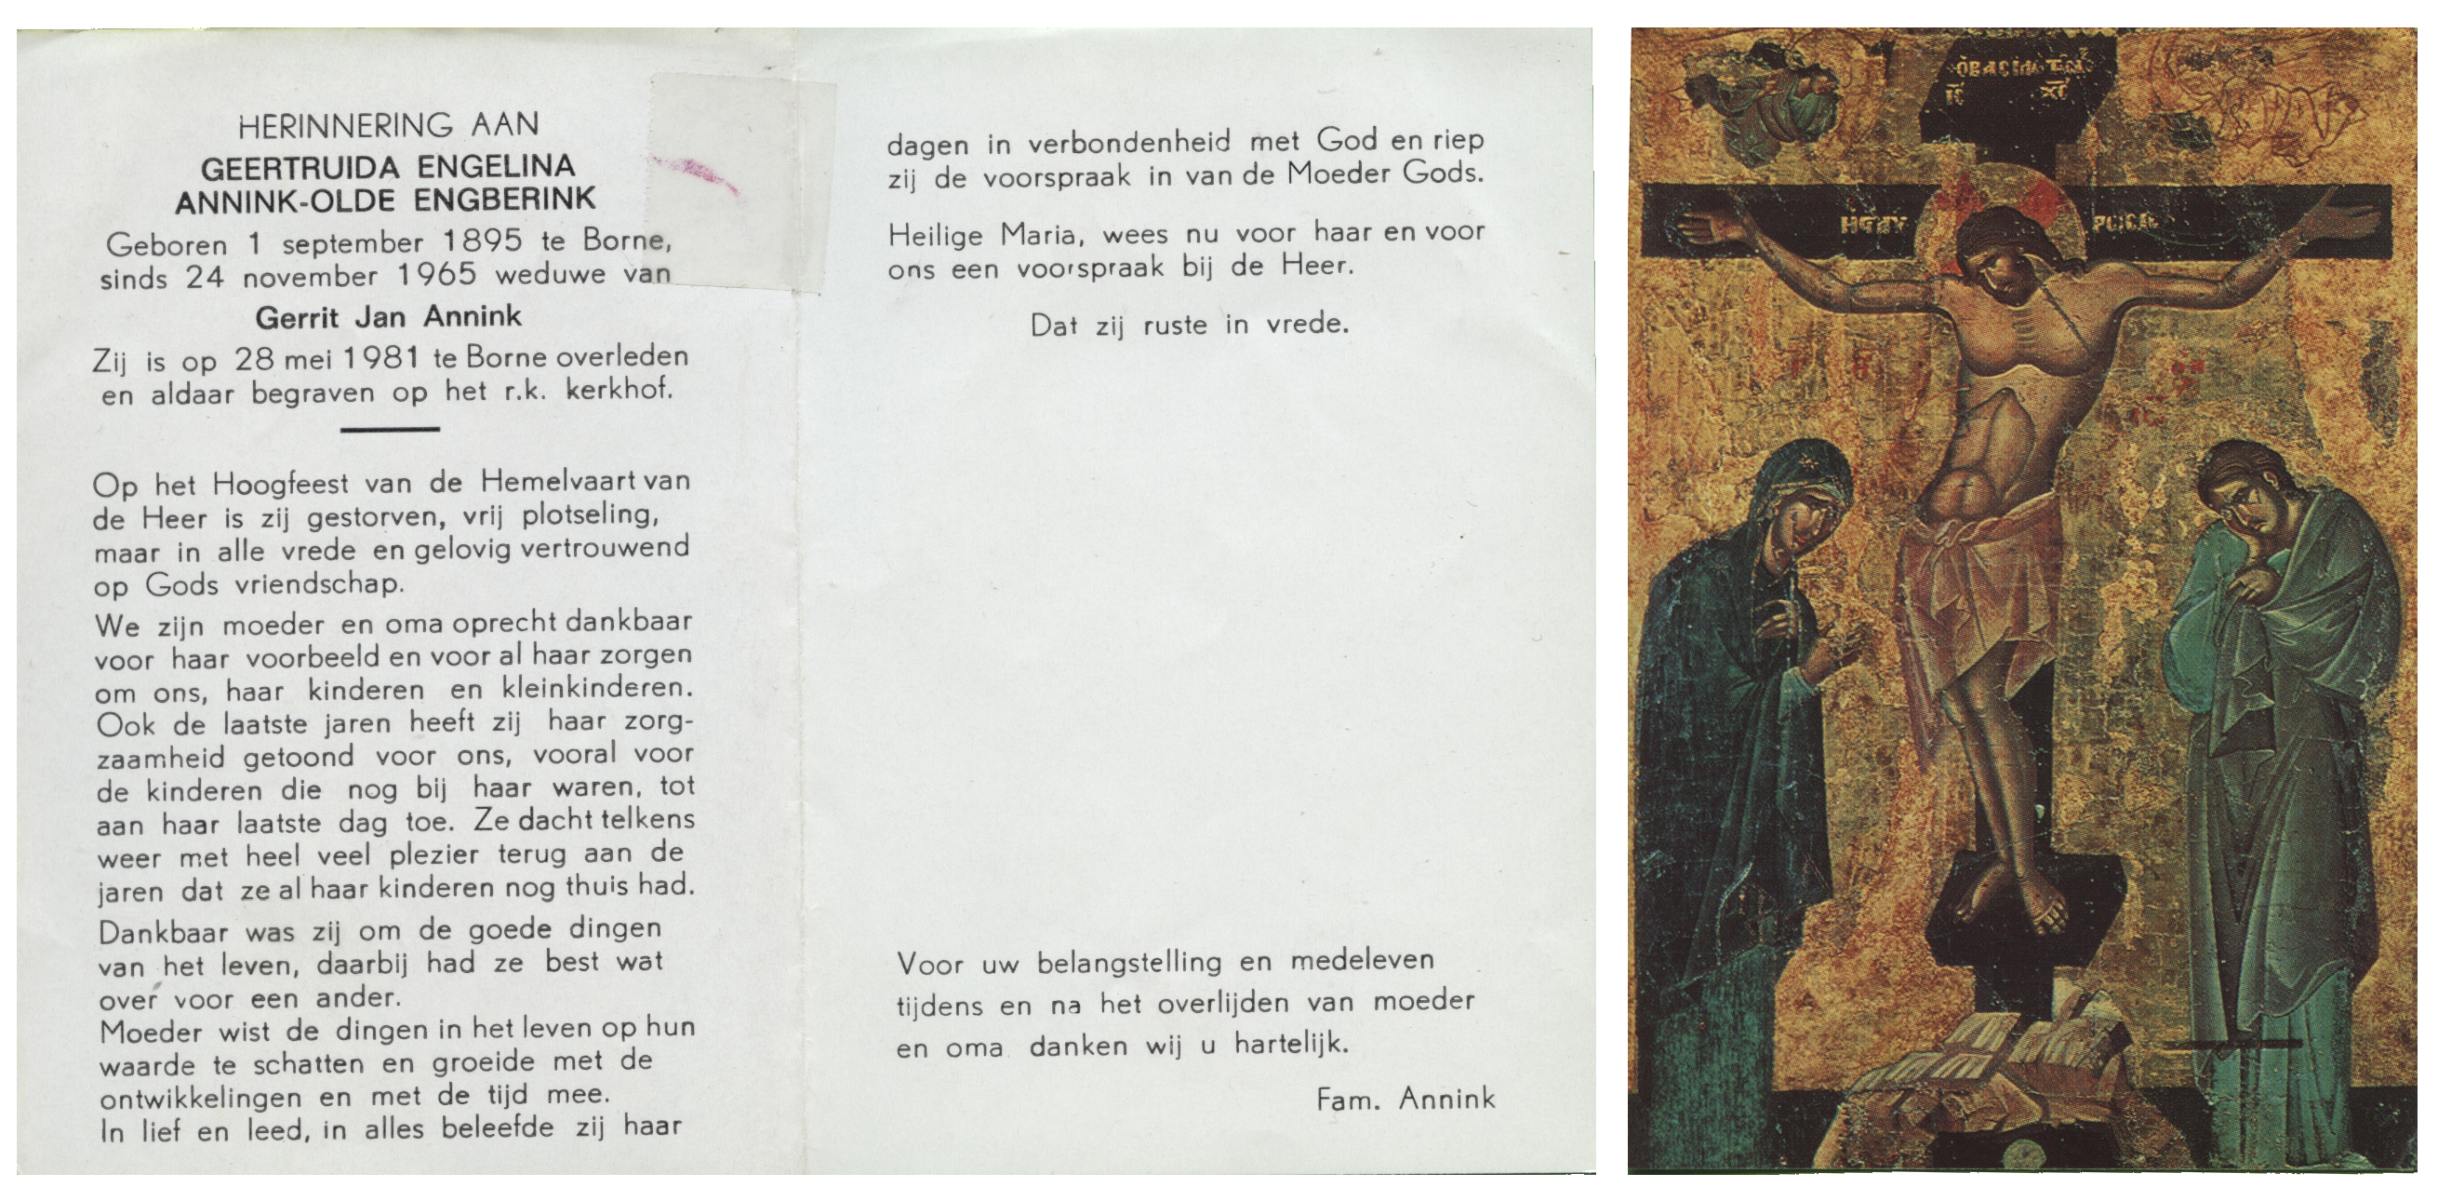 HERINNERING AAN
GEERTRUIDA ENGELINA
ANNINK-OLDE ENGBERINK
Geboren 1 september 1895 te Borne,
sinds 24 november 1965 weduwe van
Gerrit Jan Annink
Zij is op 28 mei 1981 te Borne overleden
en aldaar begraven op het r.k. kerkhof.
Op het Hoogfeest van de Hemelvaart van
de Heer is zij gestorven, vrij plotseling,
maar in alle vrede en gelovig vertrouwend
op Gods vriendschap.
We zijn moeder en oma oprecht dankbaar
voor haar voorbeeld en voor al haar zorgen
om ons, haar kinderen en kleinkinderen.
Ook de laatste jaren heeft zij haar zorg-
zaamheid getoond voor ons, vooral voor
de kinderen die nog bij haar waren, tot
aan haar laatste dag toe. Ze dacht telkens
weer met heel veel plezier terug aan de
jaren dat ze al haar kinderen nog thuis had.
Dankbaar was zij om de goede dingen
van het leven, daarbij had ze best wat
over voor een ander.
Moeder wist de dingen in het leven op hun
waarde te schatten en groeide met de
ontwikkelingen en met de tijd mee.
In lief en leed, in alles beleefde zij haar
dagen in verbondenheid met God en riep
zij de voorspraak in van de Moeder Gods.
Heilige Maria, wees nu voor haar en voor
ons een voorspraak bij de Heer.
Dat zij ruste in vrede.
Voor uw belangstelling en medeleven
tijdens en na het overlijden van moeder
en oma danken wij u hartelijk.
Fam. Annink